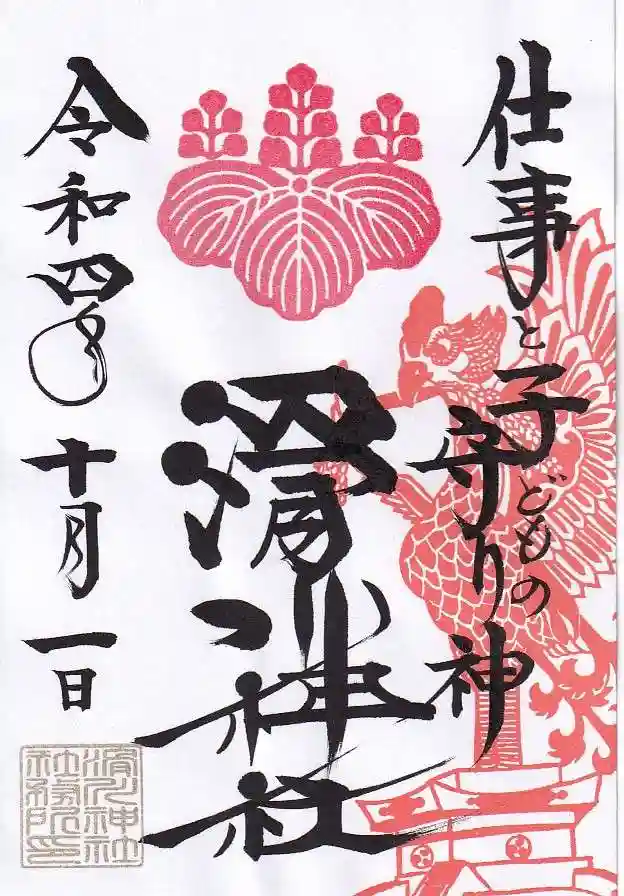 仕事と子どもの
守り神
滑川神社
令和四年十月一日
滑川神社
社務所印